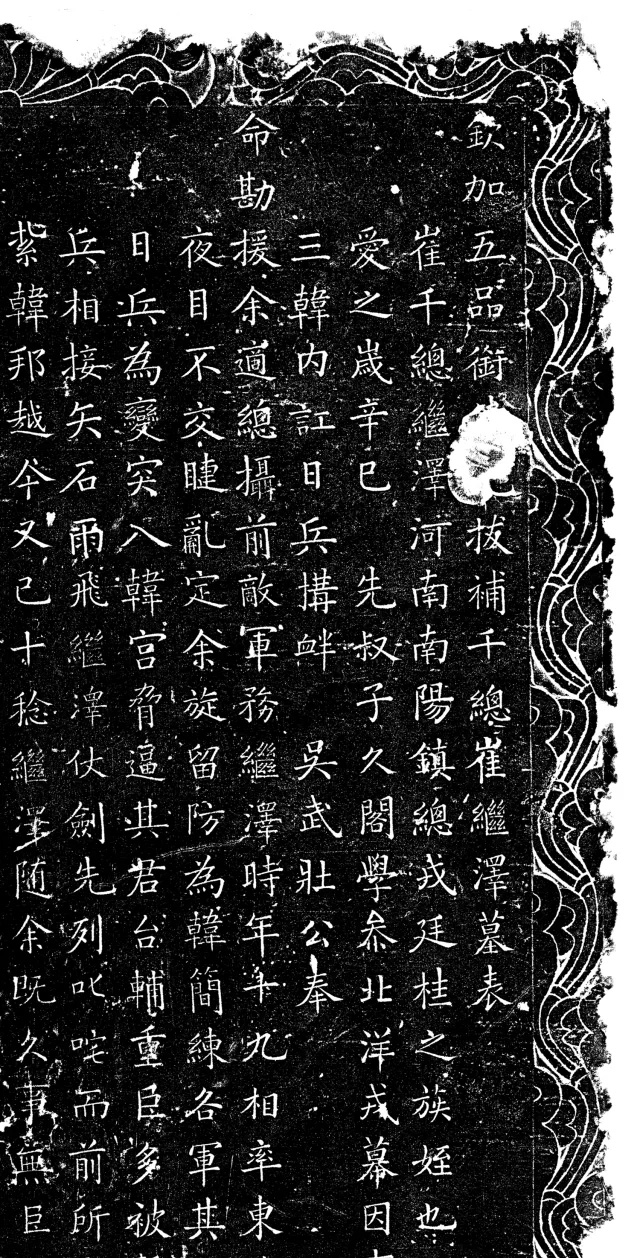 欽加五品銜拔補千總崔繼澤墓表
崔千總繼澤河南南陽鎮總戎廷桂之族姪也
愛之嵗辛巳 先叔子久閣學叅北洋戎幕因
三韓内訌日兵搆衅 吳武壯公奉
命勘
援余適總攝前敵軍務繼澤時年十九相率東
夜目不交睫亂定余旋留防為韓簡練各軍其
日兵為變突入韓宮脅逼其君台輔重臣多被
兵相接矢石雨飛繼澤仗劍先列叱咤而前所
紮韓邦越今又已十稔繼澤随余既久事無巨